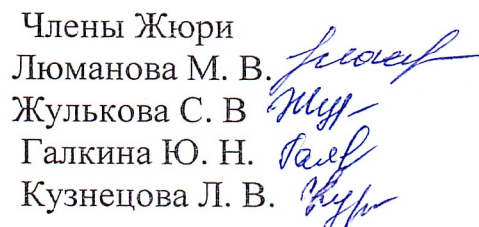 Члены Жюри
Люманова М. В.
Жулькова С. В
Галкина Ю. Н.
Кузнецова Л. В.